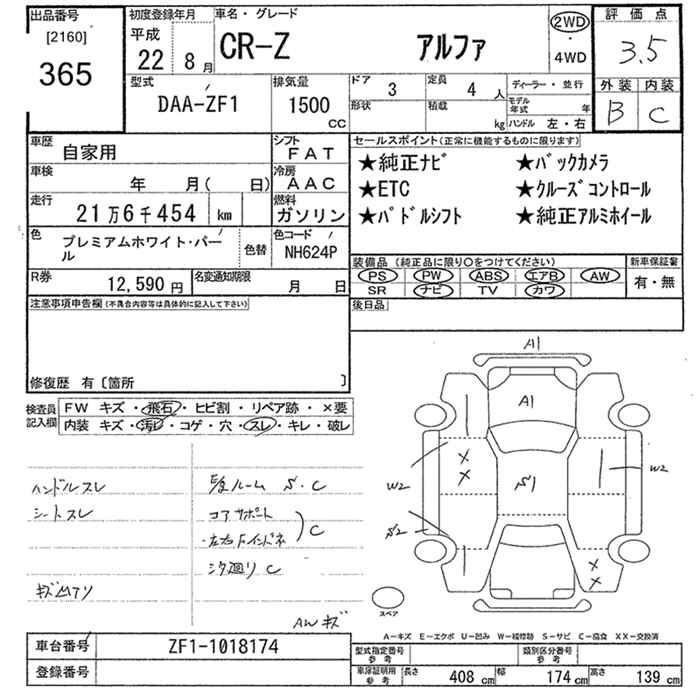 出品番号
[2160]
365
初度登録年月
平成
22 8月
車名・グレード
CR-Z アルファ
2WD
・
4WD
評価点
3.5
外装 内装
B C
型式
DAA-ZF1
排気量
1500
CC
ドア 3
定員 4 人
ディーラー・並行
形状
積載 kg
モデル年式 年
ハンドル 左・右
車歴
自家用
シフト
FAT
車検
年 月( 日)
冷房
AAC
走行
21万6千454 km
燃料
ガソリン
色
プレミアムホワイト・パール
色替
色コード
NH624P
R券
12,590円
名変通知期限
月 日
セールスポイント(正常に機能するものに限ります)
★純正ナビ ★バックカメラ
★ETC ★クルーズコントロール
★パドルシフト ★純正アルミホイール
装備品(純正品に限り○をつけてください)
PS PW ABS エアB AW
SR ナビ TV カワ
新車保証書
有・無
後日品
注意事項申告欄(不具合内容等は具体的に記入して下さい)
修復歴 有〔箇所 〕
検査員
記入欄
FW キズ・飛石・ヒビ割・リペア跡・×要
内装 キズ・汚レ・コゲ・穴・スレ・キレ・破レ
ハンドルスレ
シートスレ
キズ凹アリ
ルーム S.C
コアサポート
左右Fインドネ
C
下廻りC
AWキズ
A1
A1
S1
W2
W2
S2
スペア
A-キズ E-エクボ U-凹み W-補修跡 S-サビ C-腐食 XX-交換済
車台番号
ZF1-1018174
登録番号
型式指定番号
参考
類別区分番号
参考
車庫証明用
参考
長さ 408 cm
幅 174 cm
高さ 139 cm